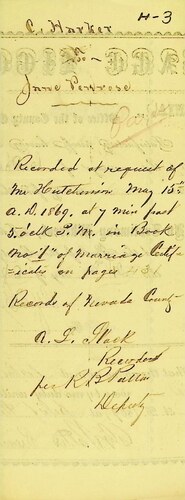 H-3
C. Harker
to
Jane Penrose
Recorded at request of
Mr Hutchinson May 15th
A.D. 1869. at 7 min past
5. oclk P.M. in Book
No 1" of Marriage Certif-
icates on page 431
Records of Nevada County
Recorder
per R B Patton
Deputy